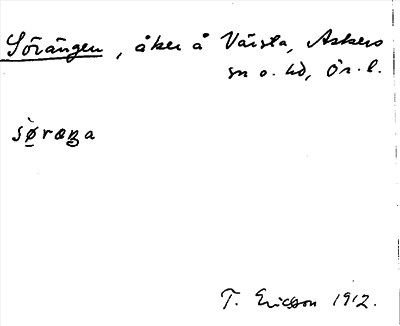 Sörängen, åker å Värsta, Askers
sn o. hd, Ör. l.
sø̀ræŋa
T. Ericsson 1912.